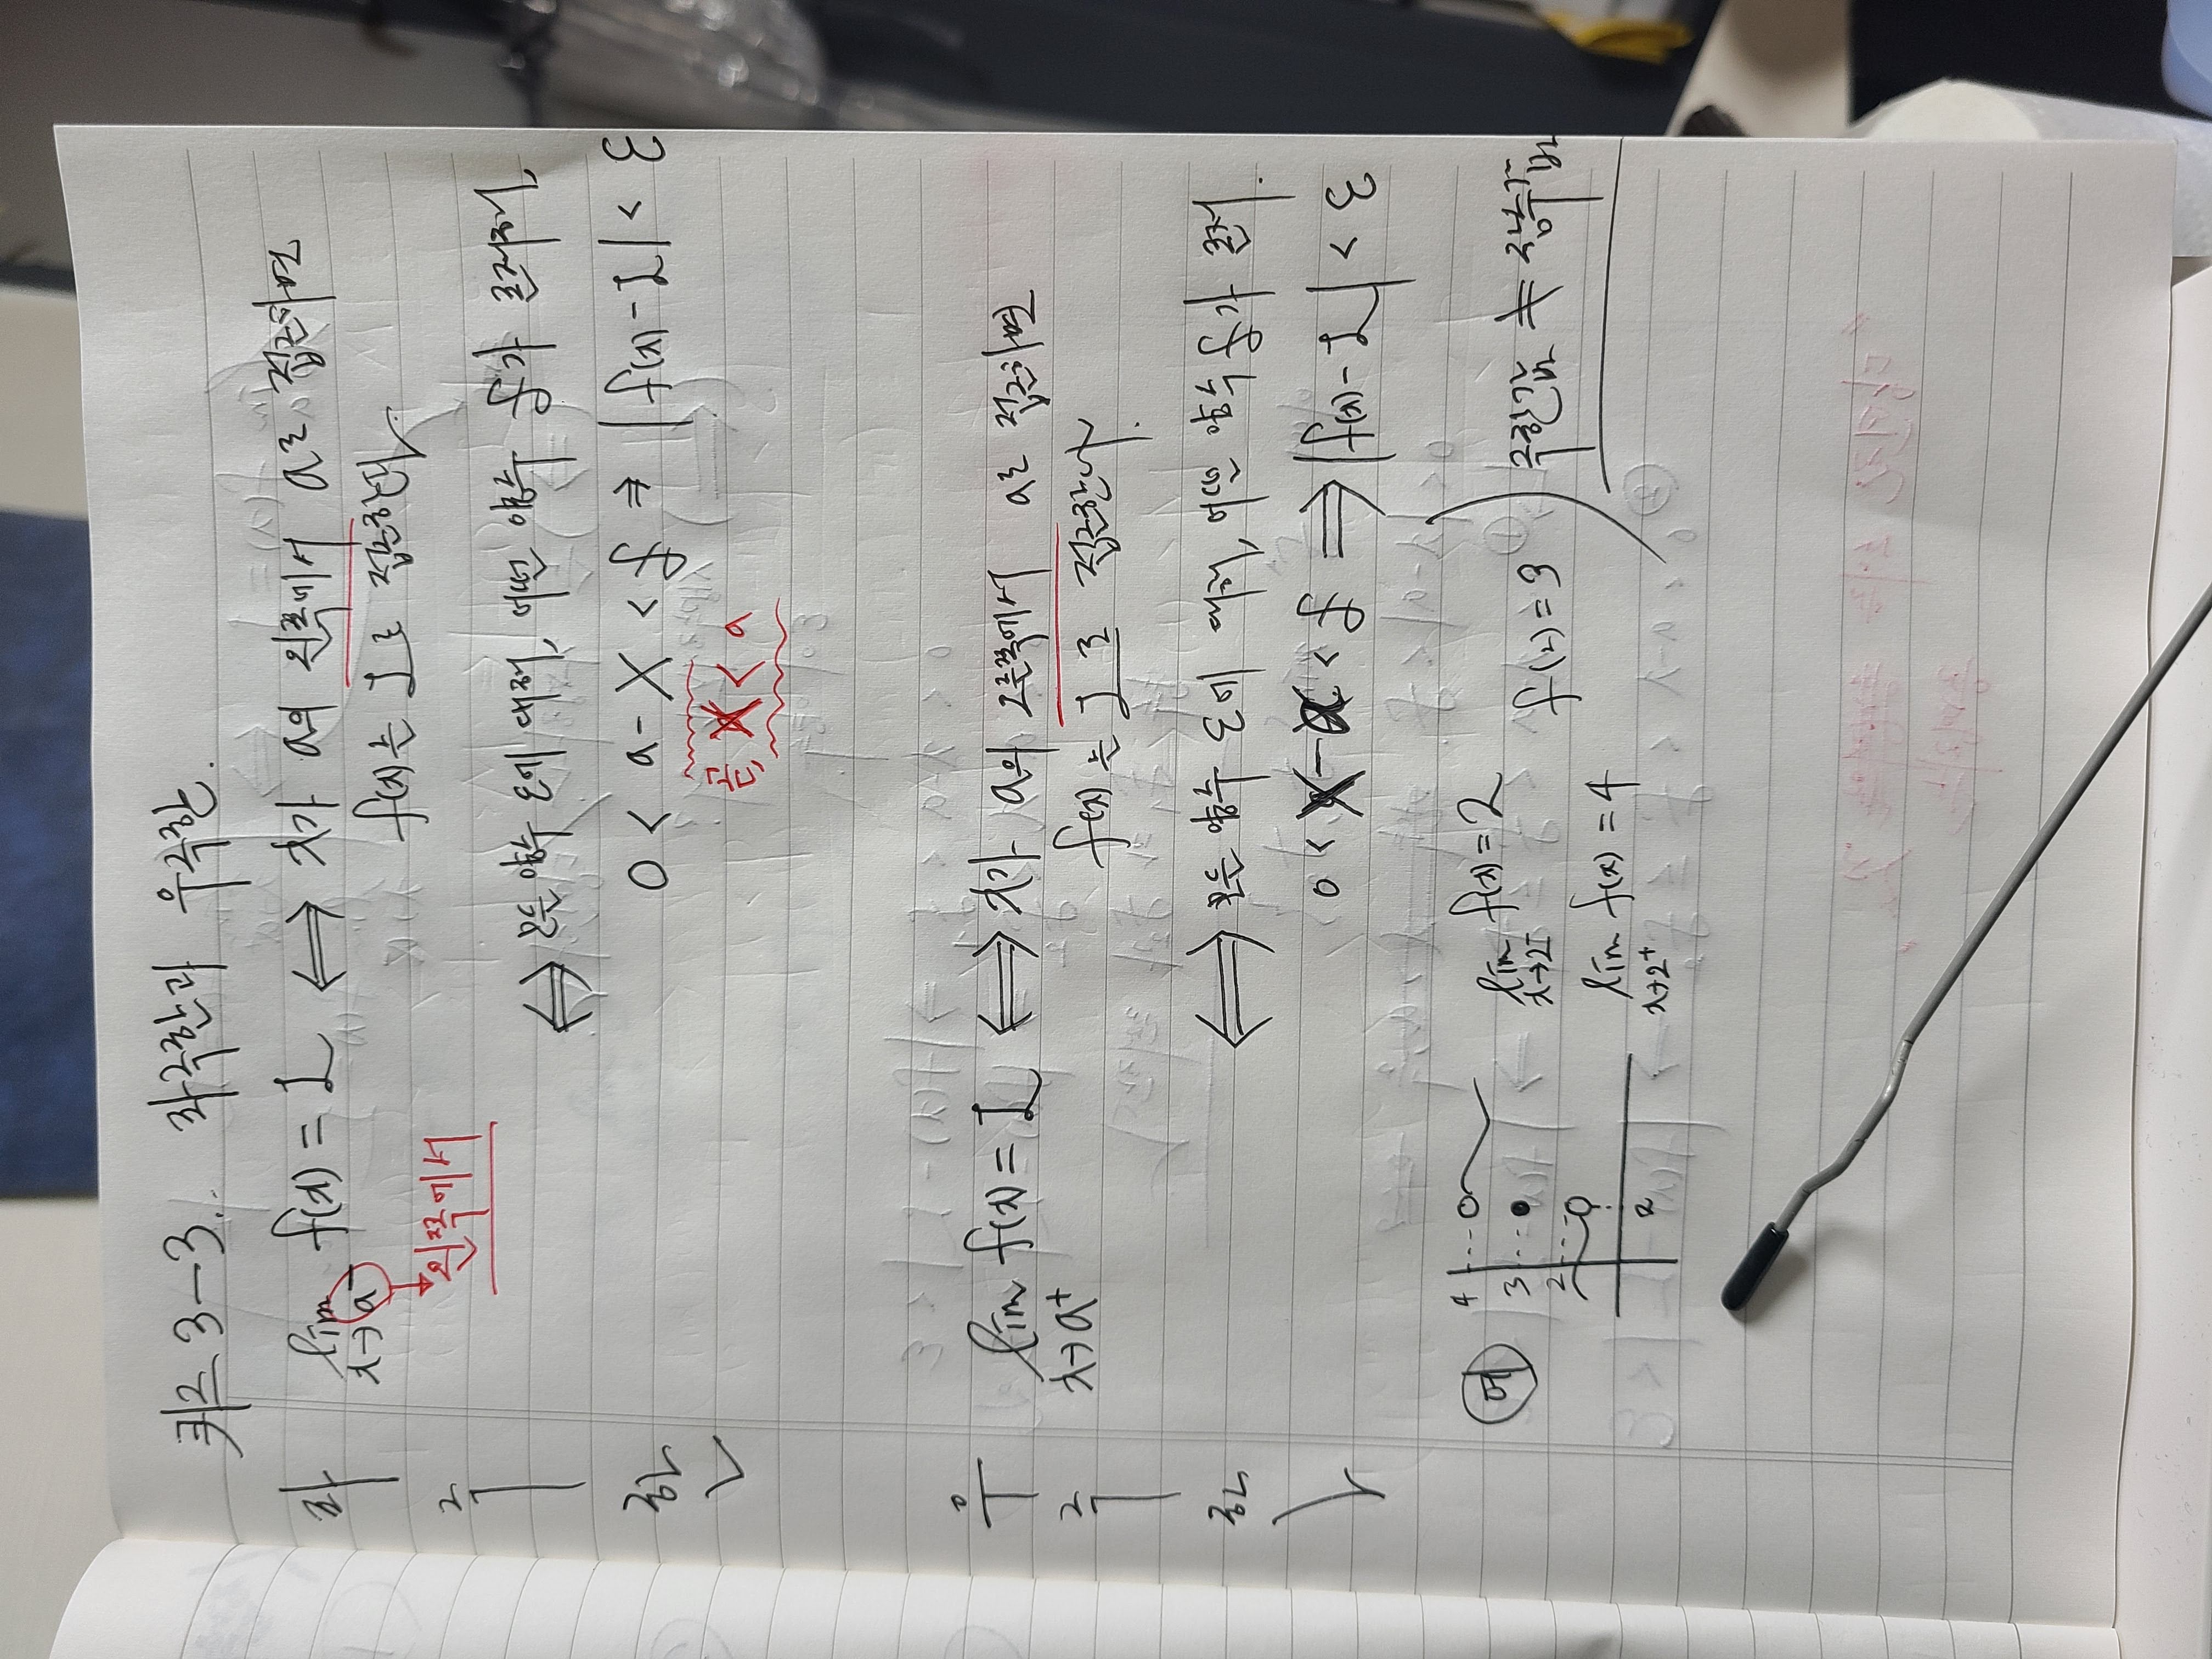 퀴즈 3-3. 좌극한과 우극한.
좌극한
lim f(x) = L ⟺ x가 a의 왼쪽에서 a로 접근하면
x→a⁻ f(x)는 L로 접근한다.
왼쪽에서
⟺ 모든 양수 ε에 대해, 어떤 양수 δ가 존재해,
0 < a - x < δ ⇒ |f(x) - L| < ε
곧, x < a
우극한
lim f(x) = L ⟺ x가 a의 오른쪽에서 a로 접근하면
x→a⁺ f(x)는 L로 접근한다.
⟺ 모든 양수 ε에 대해, 어떤 양수 δ가 존재.
0 < x - a < δ ⟹ |f(x) - L| < ε
예
4
3
2
2
lim f(x) = 2
x→2⁻
f(2) = 3
lim f(x) = 4
x→2⁺
극한값 ≠ 함수값